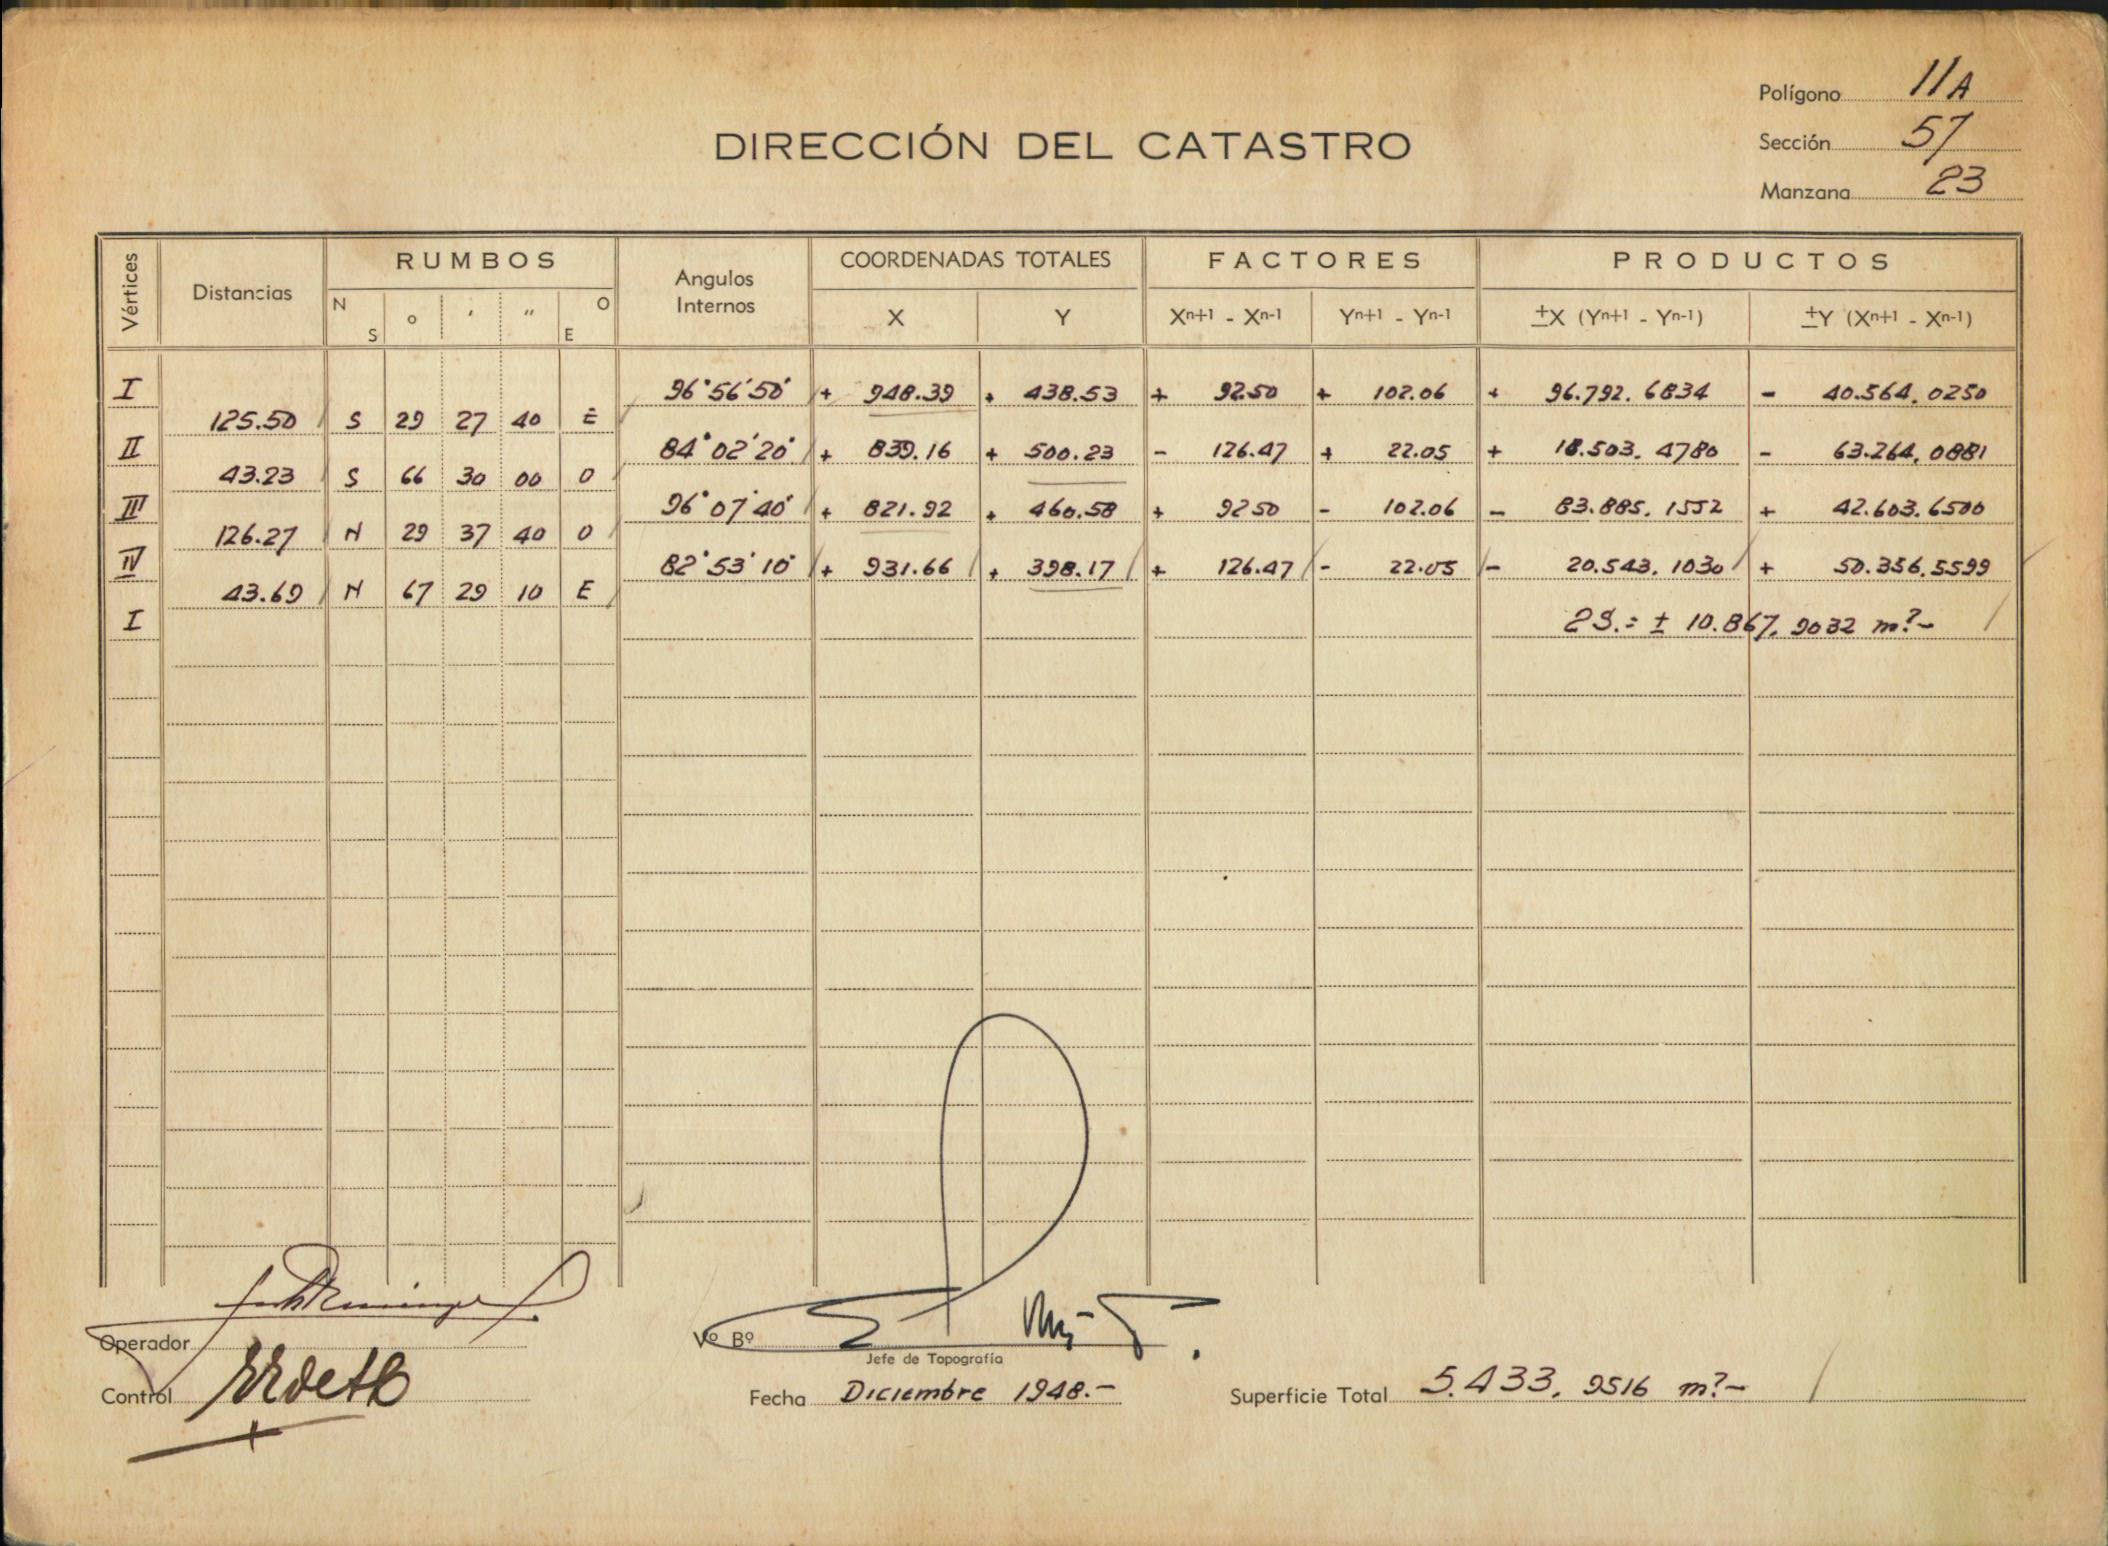 Polígono 11A
DIRECCIÓN DEL CATASTRO
Sección 57
Manzana 23
Vértices Distancias RUMBOS Angulos Internos COORDENADAS TOTALES FACTORES PRODUCTOS
N S o ' " O E X Y Xn+1 - Xn-1 Yn+1 - Yn-1 ±X (Yn+1 - Yn-1) ±Y (Xn+1 - Xn-1)
I 96°56'50" + 948.39 + 438.53 + 92.50 + 102.06 + 96.792.6834 - 40.564.0250
125.50 S 29 27 40 E
II 84°02'20" + 839.16 + 500.23 - 126.47 + 22.05 + 18.503.4780 - 63.264.0881
43.23 S 66 30 00 O
III 96°07'40" + 821.92 + 460.58 + 9250 - 102.06 - 83.885.1552 + 42.603.6500
126.27 N 29 37 40 O
IV 82°53'10" + 931.66 + 398.17 + 126.47 - 22.05 - 20.543.1030 + 50.356.5599
43.69 N 67 29 10 E
I 2S.= ± 10.867.9032 m².-
Operador
Vº Bº
Jefe de Topografía
Control
Fecha Diciembre 1948.-
Superficie Total 5.433.9516 m².-